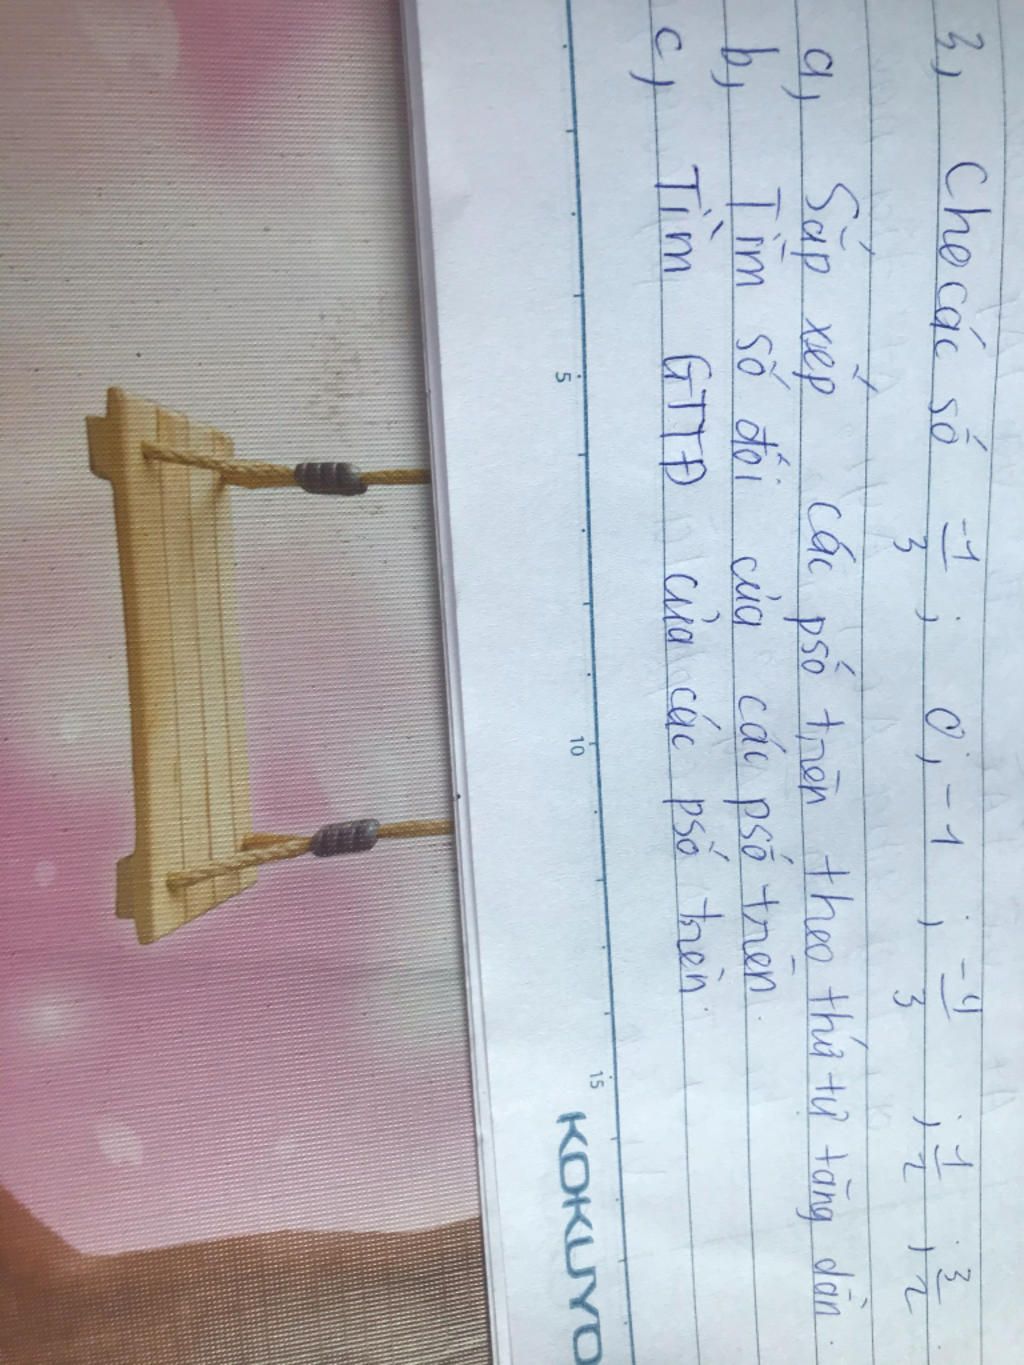 3, Cho các số -1/3 ; 0 ; -1 ; -4/3 ; 1/2 ; 3/2
a, Sắp xếp các psố trên theo thứ tự tăng dần.
b, Tìm số đối của các psố trên.
c, Tìm GTTĐ của các psố trên.
5 10 15
KOKUYO